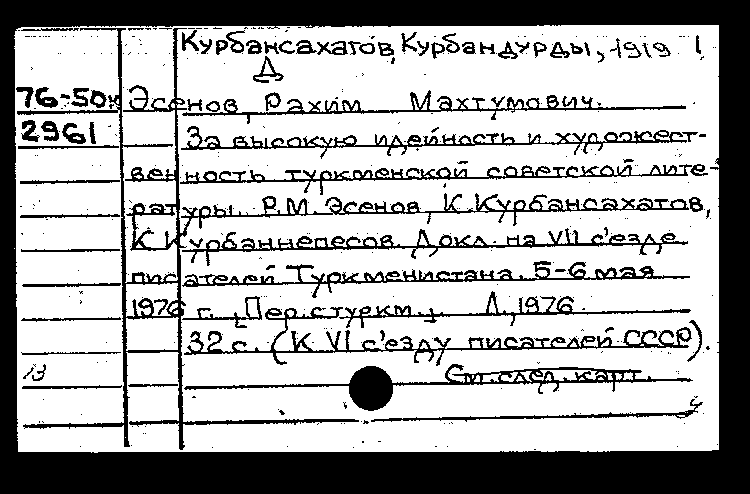 Курбансахатов, Курбандурды, 1919
Д
76-50к Эсенов, Рахим Махтумович.
2961 За высокую идейность и художест-
венность туркменской советской лите-
ратуры. Р.М.Эсенов, К.Курбансахатов,
К.Курбаннепесов. Докл. на VII с'езде
писателей Туркменистана. 5-6 мая
1976 г. [Пер.с туркм.]. А.,1976.
32 с. (К VI с'езду писателей СССР).
См.след.карт.